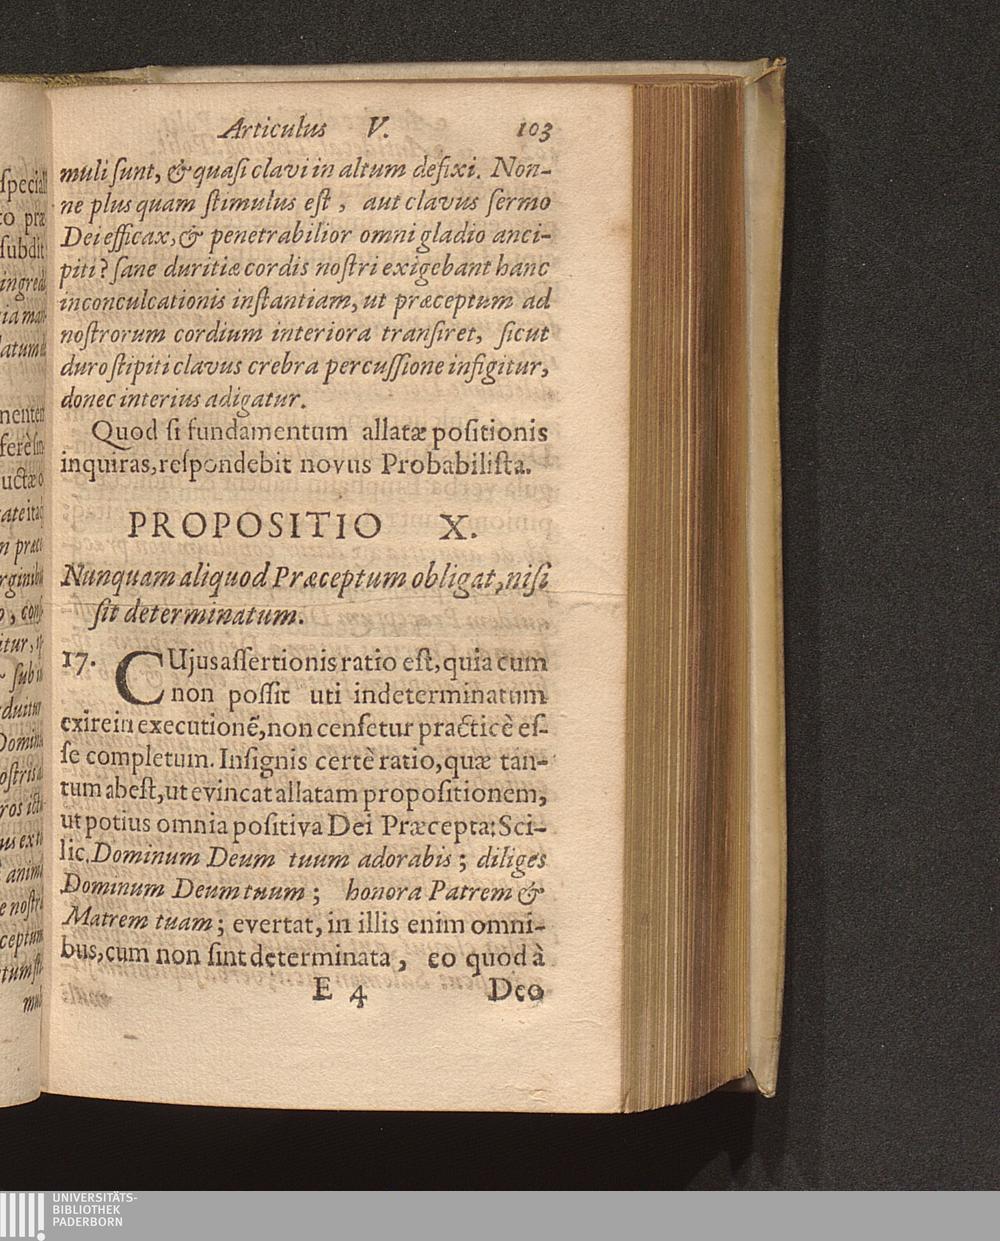 Articulus V. 103
muli ſunt, & quaſi clavi in altum defixi. Non-
ne plus quam ſtimulus eſt, aut clavus ſermo
Dei efficax, & penetrabilior omni gladio anci-
piti? ſane duritiæ cordis noſtri exigebant hanc
inconculcationis inſtantiam, ut præceptum ad
noſtrorum cordium interiora tranſiret, ſicut
duro ſtipiti clavus crebra percuſſione infigitur,
donec interius adigatur.
Quod ſi fundamentum allatæ poſitionis
inquiras, reſpondebit novus Probabiliſta.
PROPOSITIO X.
Nunquam aliquod Præceptum obligat, niſi
ſit determinatum.
17. CUjus aſſertionis ratio eſt, quia cum
non poſſit uti indeterminatum
exire in executionẽ, non cenſetur practicè eſ-
ſe completum. Inſignis certè ratio, quæ tan-
tum abeſt, ut evincat allatam propoſitionem,
ut potius omnia poſitiva Dei Præcepta: Sci-
lic. Dominum Deum tuum adorabis; diliges
Dominum Deum tuum; honora Patrem &
Matrem tuam; evertat, in illis enim omni-
bus, cum non ſint determinata, eo quod à
E 4 Deo
ſpecial
to præ
ſubdit
ingred
ia man
latum
nenten
ferè ſin
uctæ o
ate ita
n præc
rgini
o, conſ
itur,
ſub
duitur
Domin
oſtris
ros ict
us ext
anim
e noſtr
ceptum
tum ſti
mul
UNIVERSITÄTS-
BIBLIOTHEK
PADERBORN